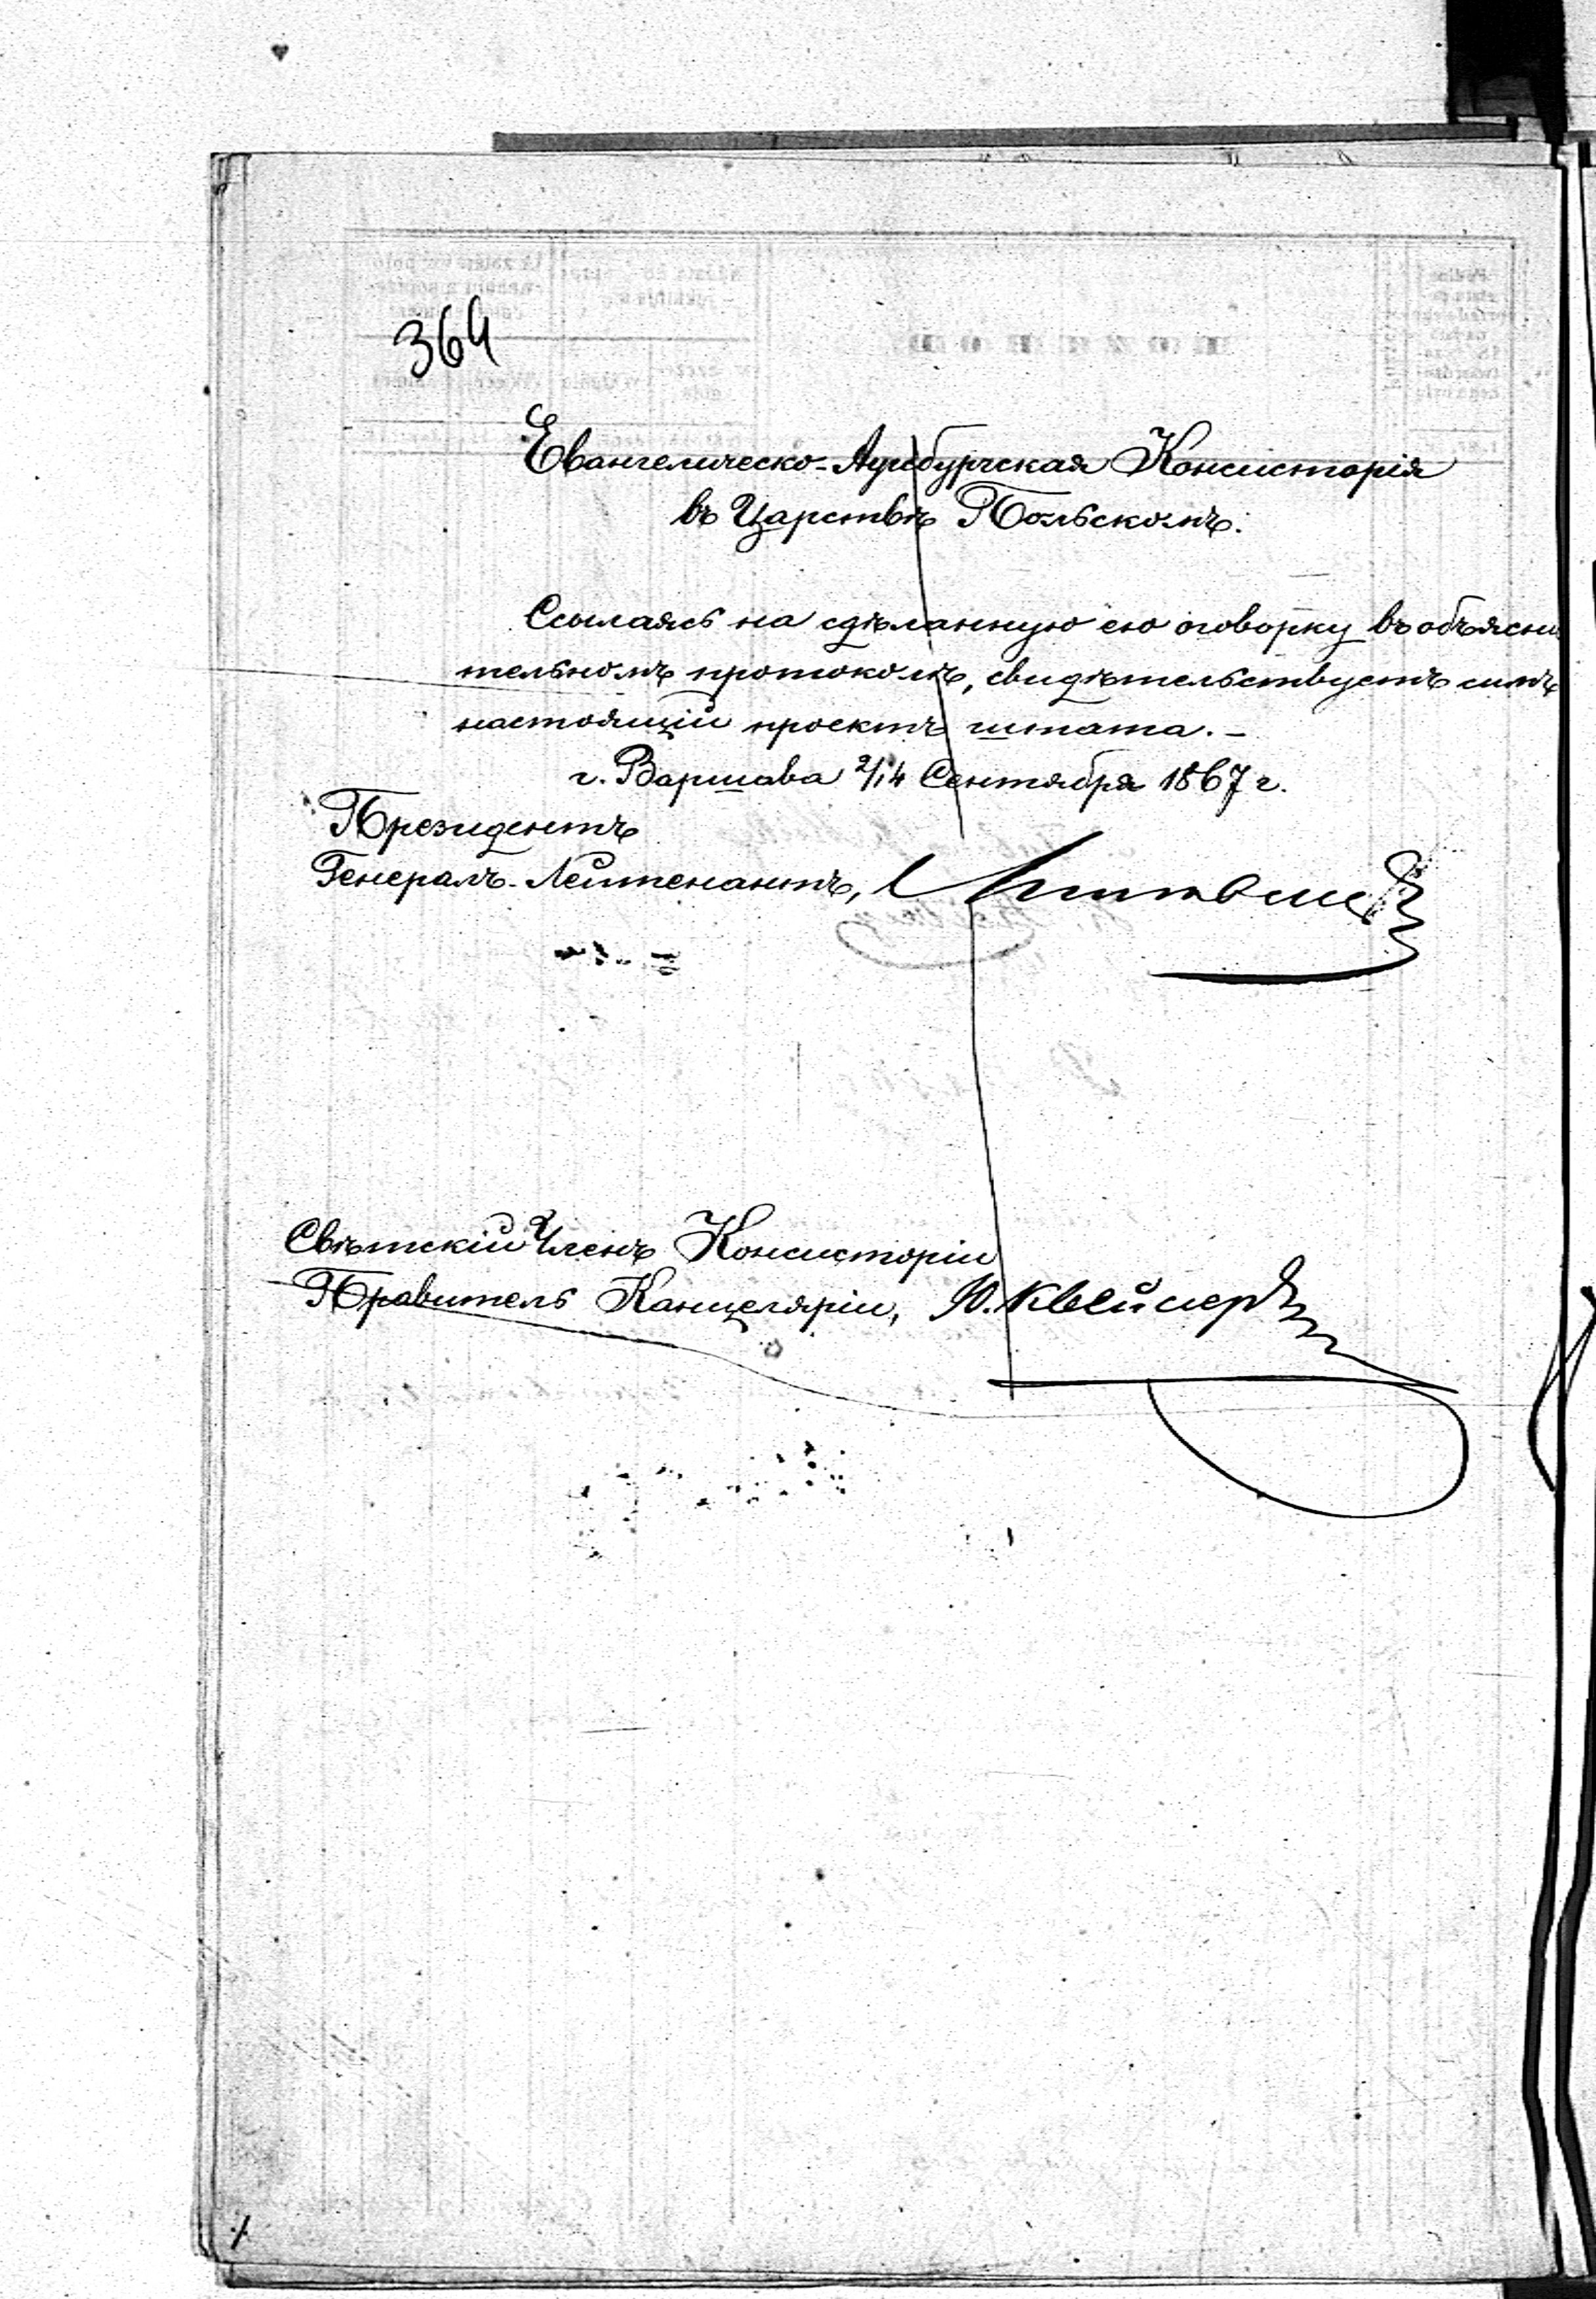 364
Евангелическо-Аугсбургская Консисторія
въ Царствѣ Польскомъ.
Ссылаясь на сдѣланную ею оговорку въ объясни
тельномъ протоколѣ, свидѣтельствуетъ симъ
настоящій проектъ штата. —
г. Варшава 2/14 Сентября 1867 г.
Президентъ
Генералъ-Лейтенантъ,
Свѣтскій Членъ Консисторіи
Правитель Канцеляріи, Ю.